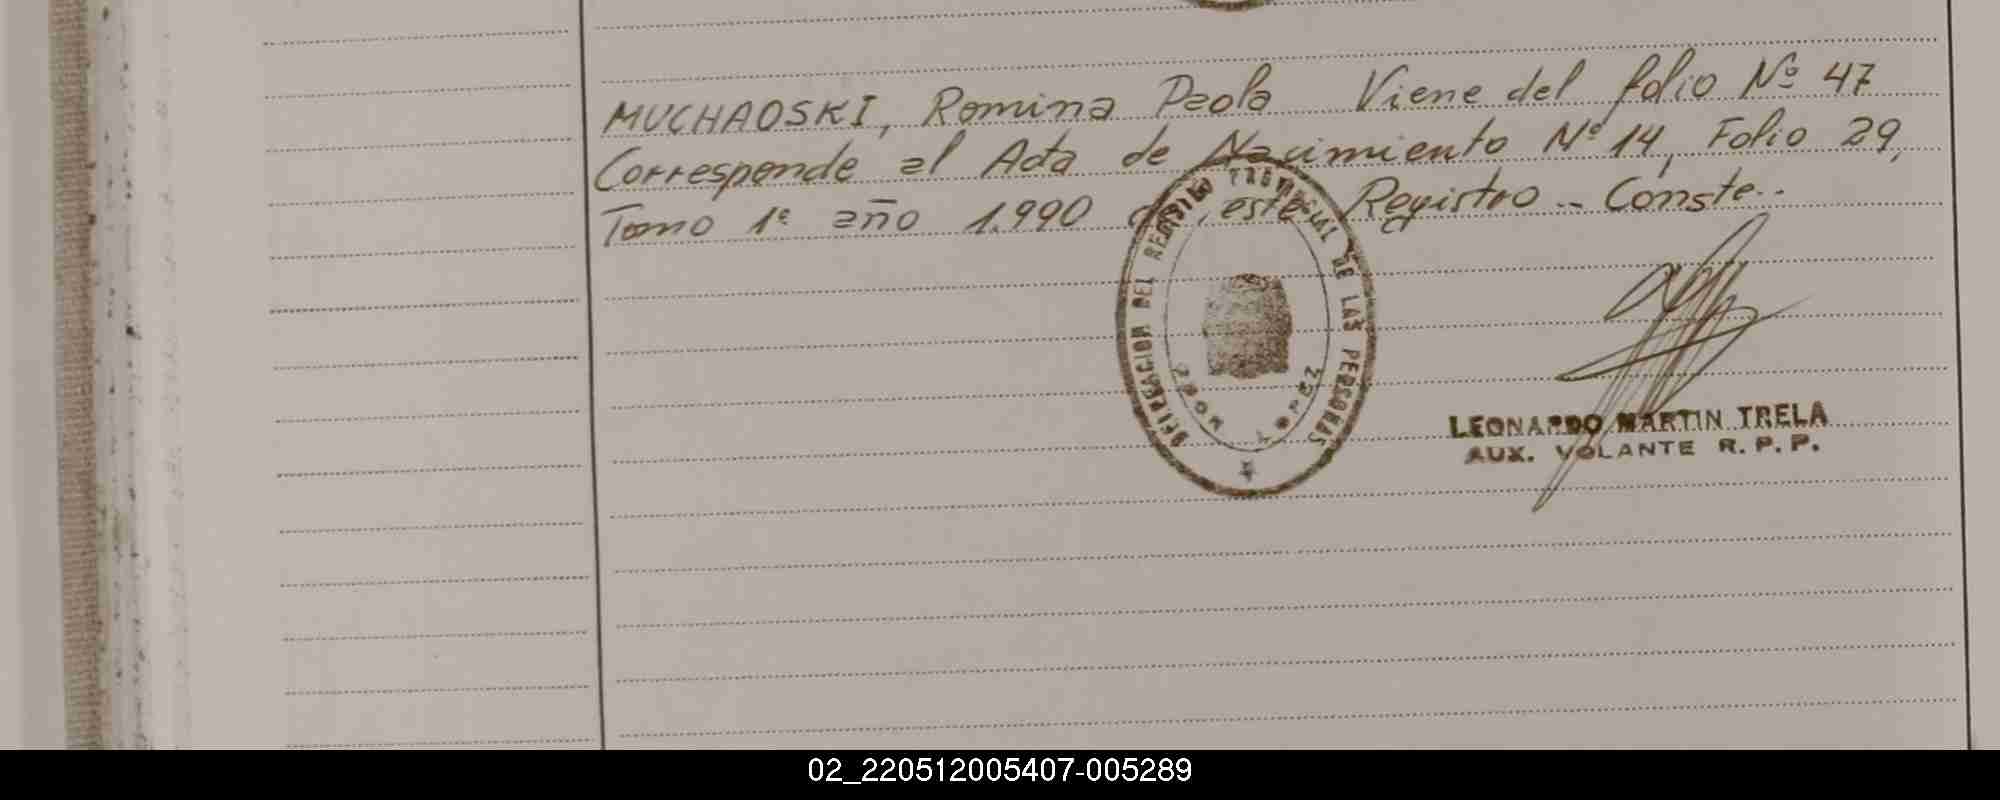 MUCHAOSKI, Romina Paola Viene del folio Nº 47
Corresponde al Acta de Nacimiento Nº 14, Folio 29,
Tomo 1º año 1.990 de este Registro -- Conste--
DELEGACION DEL REGISTRO PROVINCIAL DE LAS PERSONAS
LEONARDO MARTIN TRELA
AUX. VOLANTE R. P. P.
02_220512005407-005289